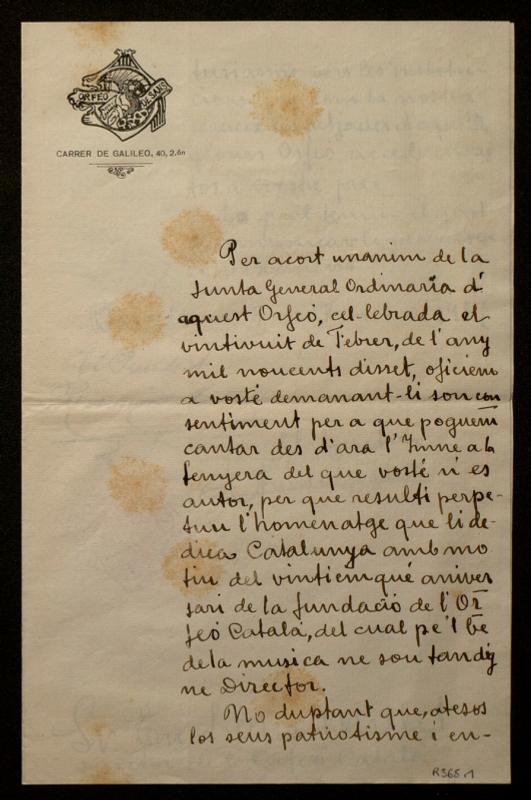 ORFEÓ DE SANS
CARRER DE GALILEO, 40, 2.ôn
Per acort unanim de la
Junta General Ordinaria d'
aquest Orfeó, cel-lebrada el
vintivuit de Febrer, de l'any
mil noucents disset, oficiem
a vosté demanant-li son con
sentiment per a que poguem
cantar des d'ara l'Himne a la
Senyera del que vosté n'es
autor, per que resulti perpe-
tuu l'homenatge que li de-
dica Catalunya amb mo
tiu del vinticinqué aniver
sari de la fundació de l'Or
feó Catalá, del cual pe'l bé
de la musica ne sou tan dig
ne Director.
No duptant que, atesos
los seus patriotisme i en-
R365.1